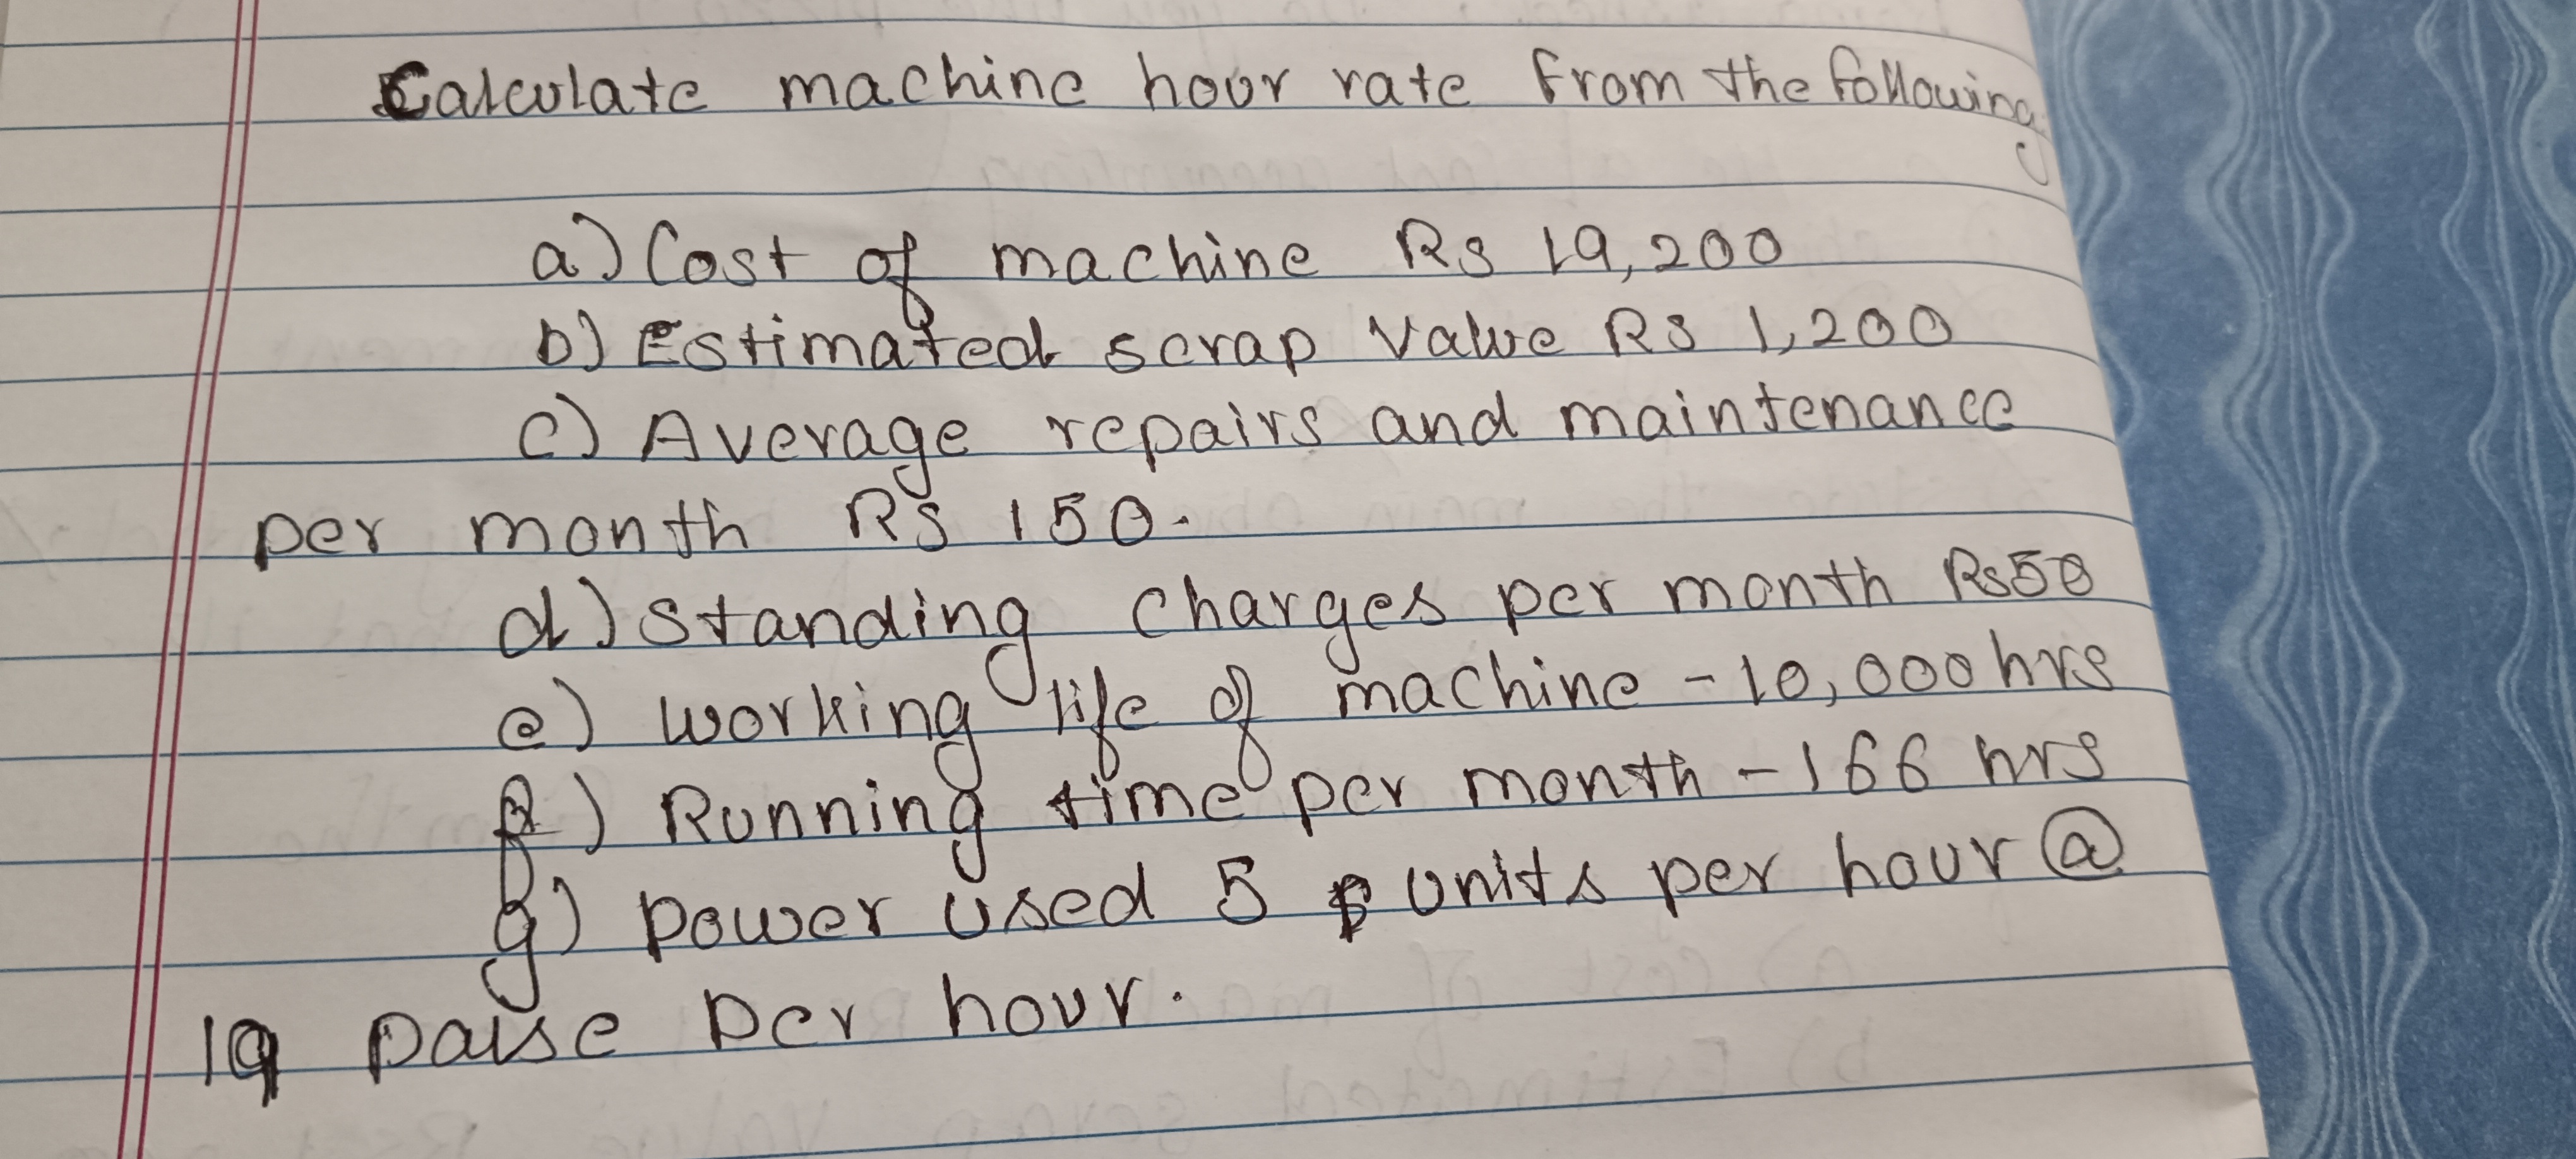 Calculate machine hour rate from the following
a) Cost of machine Rs 19,200
b) Estimated scrap value Rs 1,200
c) Average repairs and maintenance
per month Rs 150.
d) standing charges per month Rs50
e) working life of machine - 10,000 hrs
f) Running time per month - 166 hrs
g) power used 5 units per hour @
19 paise per hour.